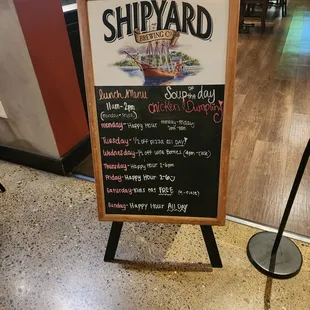 SHIPYARD
BREWING CO.
Lunch Menu
11am-2pm
Soup of the day
Chicken Dumpling
Monday- Happy Hour
Tuesday- 1/2 off pizza all DAY!
Wednesday- 1/2 off wine Bottles (4pm-close)
Thursday- Happy Hour 2-6pm
Friday- Happy Hour 2-6
Saturday- Kids eat FREE
Sunday- Happy Hour All Day